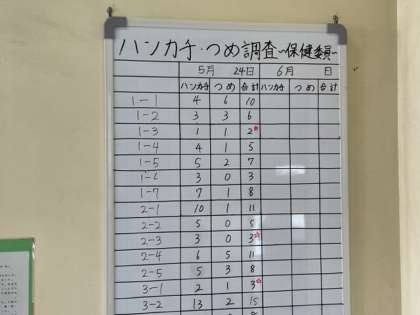 ハンカチ・つめ調査 ~保健委員~
5月 24日 6月 日
ハンカチ つめ 合計 ハンカチ つめ 合計
1-1 4 6 10
1-2 3 3 6
1-3 1 1 2
1-4 4 1 5
1-5 5 2 7
1-6 3 0 3
1-7 7 1 8
2-1 10 1 11
2-2 5 0 5
2-3 3 0 3
2-4 6 5 11
2-5 5 3 8
3-1 2 1 3
3-2 13 2 15